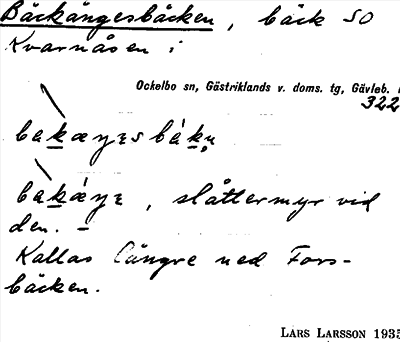 Bäckängesbäcken, bäck SO
Kvarnåsen i
Ockelbo sn, Gästriklands v. doms. tg, Gävleb.
322
, slåttermyr vid
den. —
Kallas längre ned Fors-
bäcken.
LARS LARSSON 1935